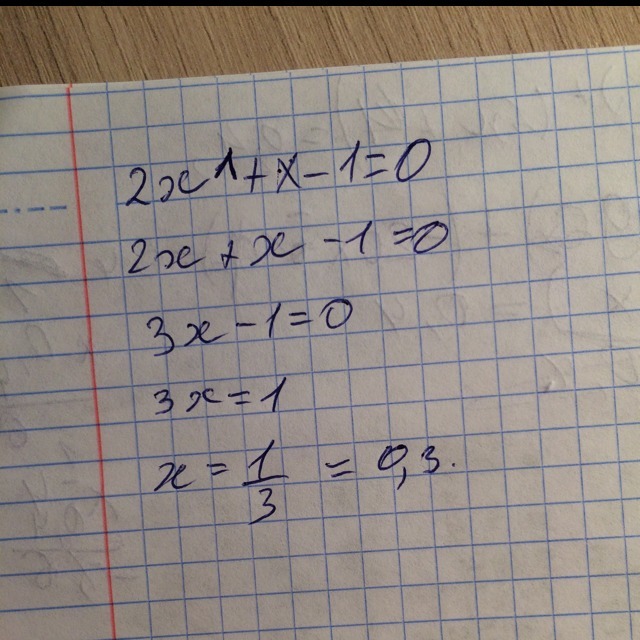 2x¹+x-1=0
2x+x-1=0
3x-1=0
3x=1
x=1/3=0,3.